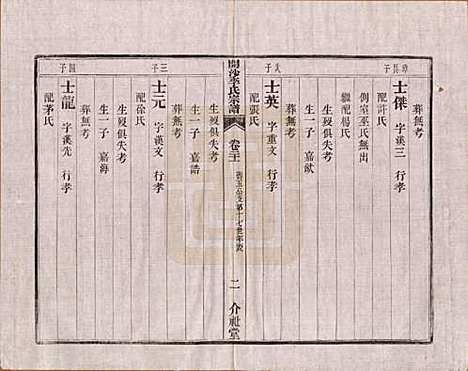 士傑 字漢三 行孝
配許氏
側室巫氏無出
繼配楊氏
生歿俱失考
生一子 嘉猷
葬無考
次子
士英 字重文 行孝
配張氏
開沙李氏宗譜
卷三
二 介祉堂
葬無考
生歿俱失考
生一子 嘉誥
三子
士元 字漢文 行孝
配徐氏
葬無考
生歿俱失考
生一子 嘉海
四子
士龍 字漢先 行孝
配茅氏